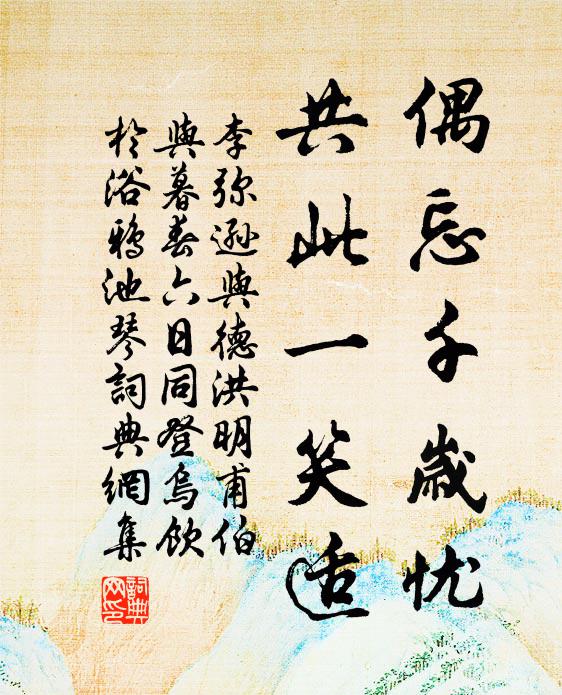 偶忘千歲忧
共此一笑适
李弥遜與德洪明甫伯
與暮春六日同登烏飲
於浴鴉池琴詞典網集
詞典
网印